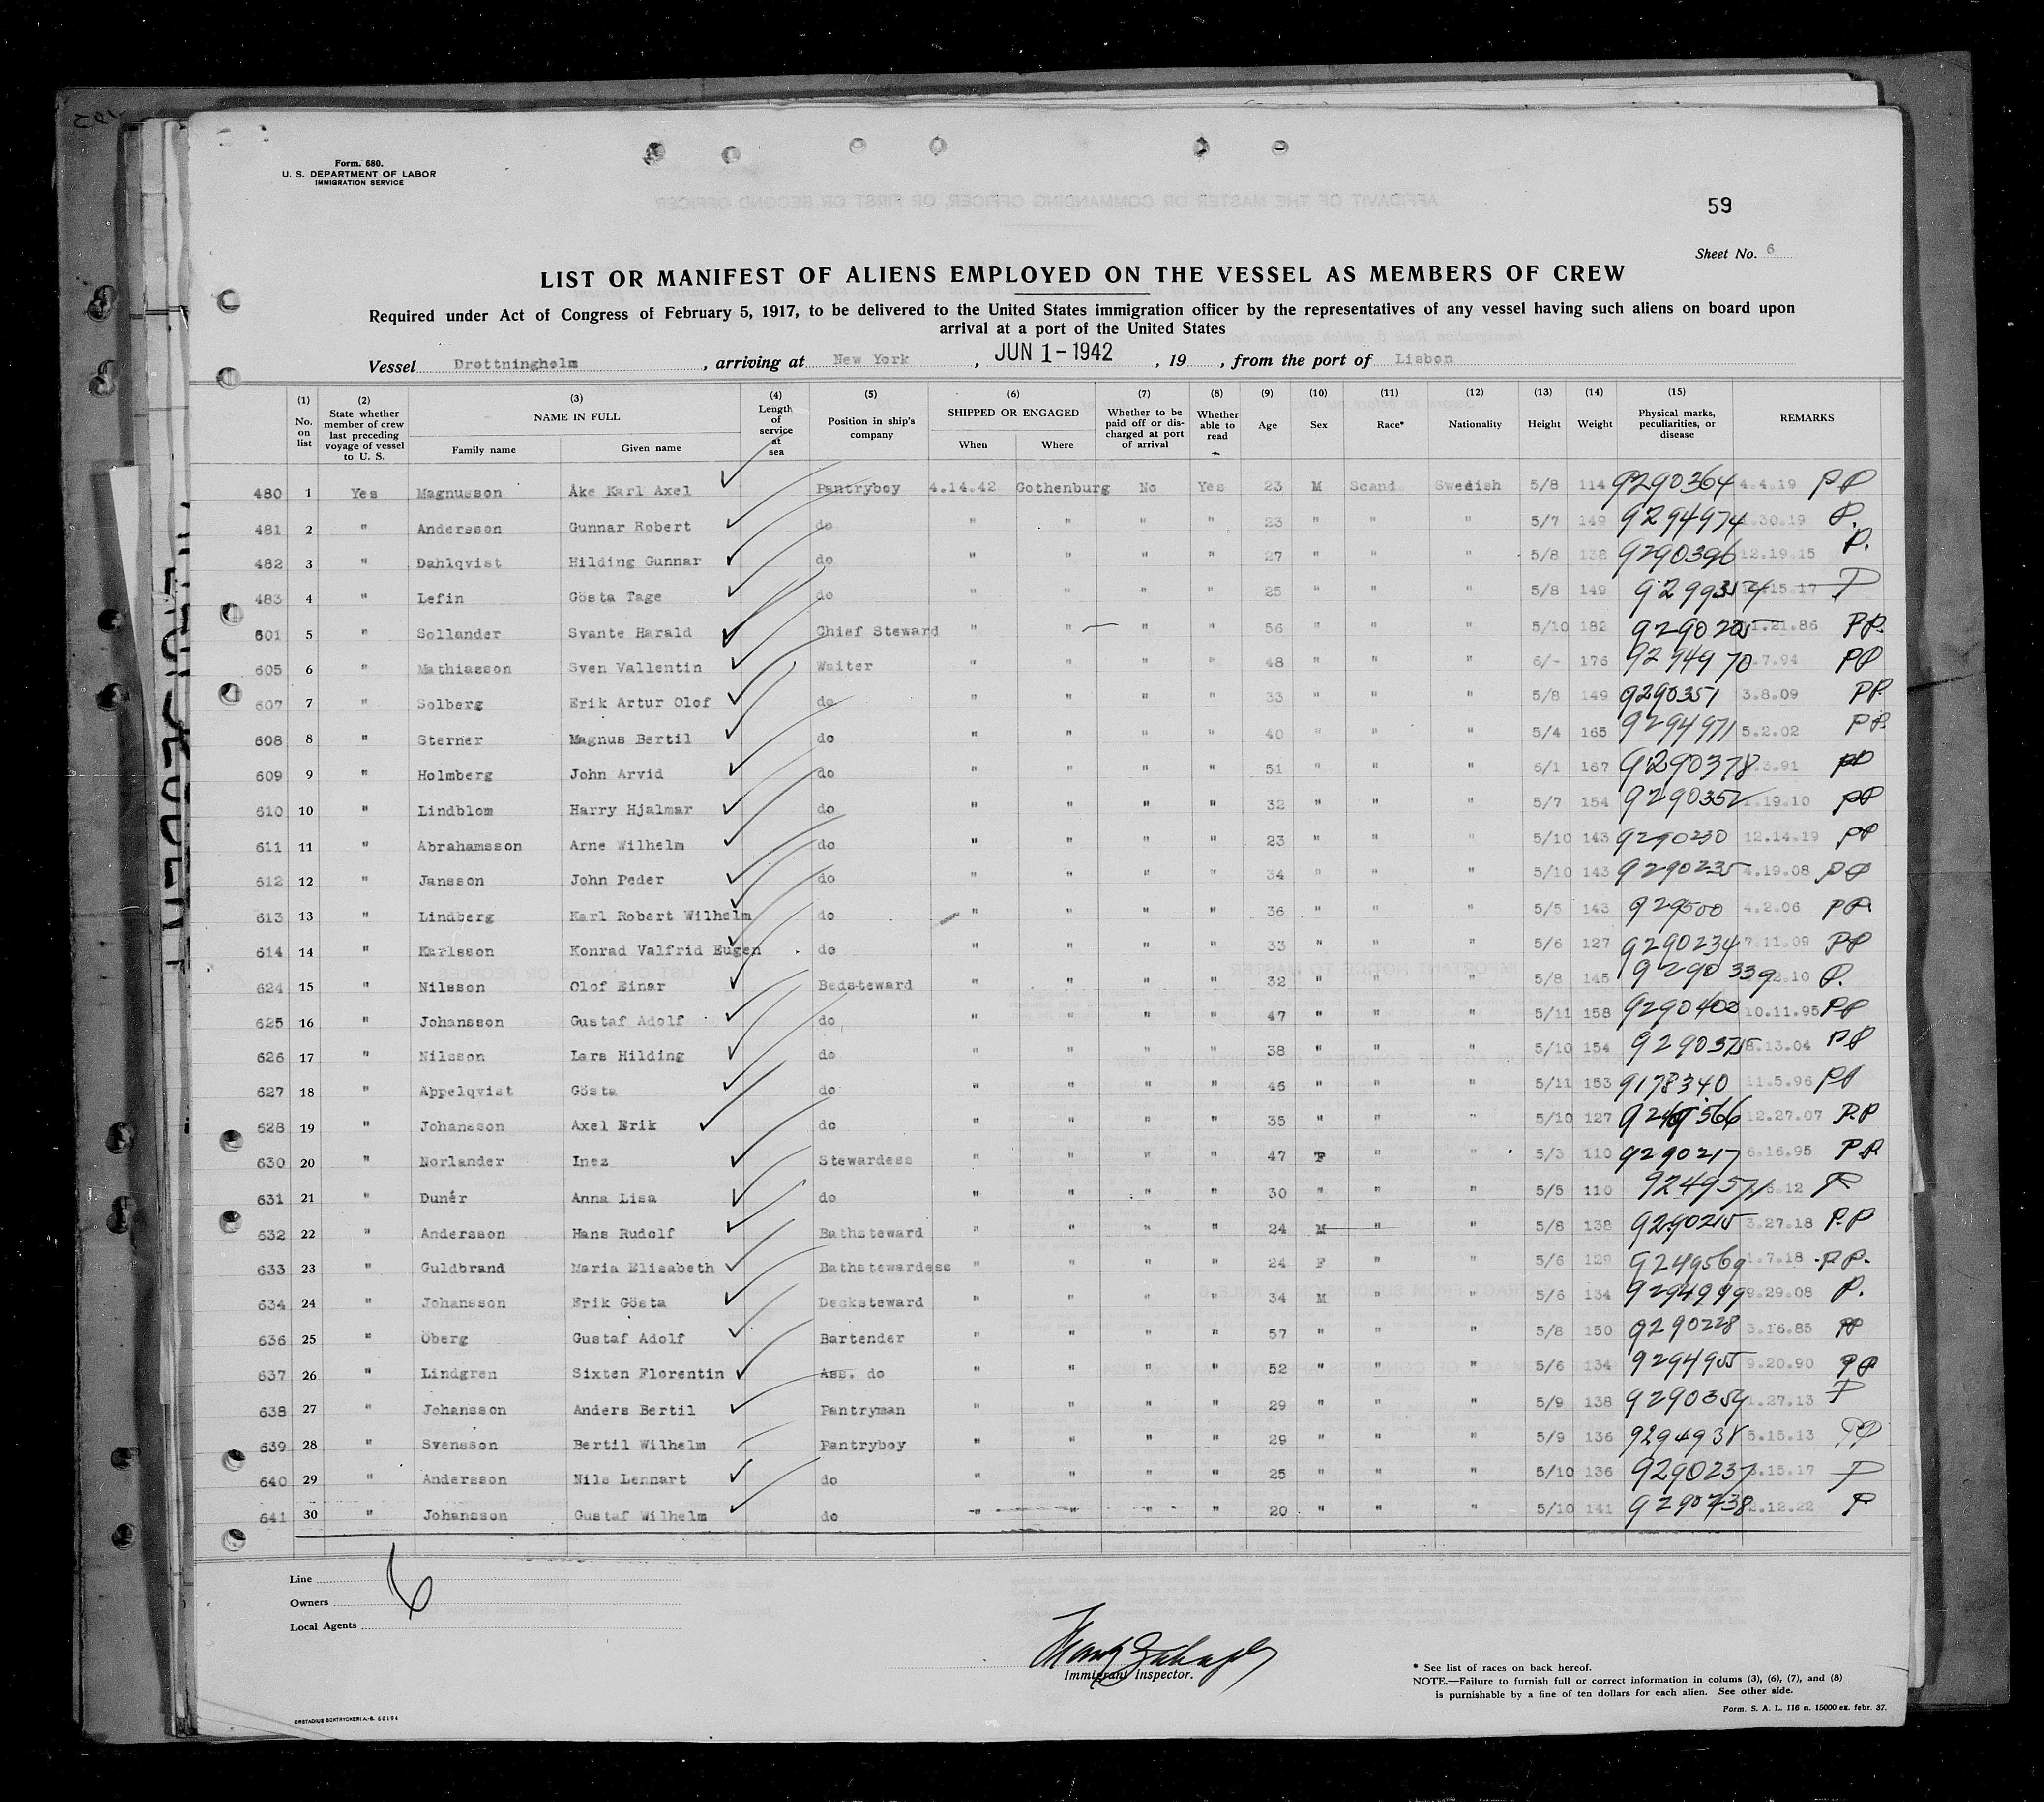 Form. 680.
U. S. DEPARTMENT OF LABOR
IMMIGRATION SERVICE
59
Sheet No. 6
LIST OR MANIFEST OF ALIENS EMPLOYED ON THE VESSEL AS MEMBERS OF CREW
Required under Act of Congress of February 5, 1917, to be delivered to the United States immigration officer by the representatives of any vessel having such aliens on board upon
arrival at a port of the United States
Vessel Drottningholm, arriving at New York, JUN 1-1942, 19 , from the port of Lisbon
(1) No. on list (2) State whether member of crew last preceding voyage of vessel to U. S. (3) NAME IN FULL Family name Given name (4) Length of service at sea (5) Position in ship's company (6) SHIPPED OR ENGAGED When Where (7) Whether to be paid off or discharged at port of arrival (8) Whether able to read (9) Age (10) Sex (11) Race* (12) Nationality (13) Height (14) Weight (15) Physical marks, peculiarities, or disease REMARKS
480 1 Yes Magnusson Åke Karl Axel Pantryboy 4.14.42 Gothenburg No Yes 23 M Scand. Swedish 5/8 114 9290364 4.4.19 PP
481 2 " Andersson Gunnar Robert do " " " " 23 " " " 5/7 149 9294974 .30.19 P.
482 3 " Dahlqvist Hilding Gunnar do " " " " 27 " " " 5/8 138 9290396 12.19.15 P.
483 4 " Lefin Gösta Tage do " " " " 25 " " " 5/8 149 .15.17 P
601 5 " Sollander Svante Harald Chief Steward " " " " 56 " " " 5/10 182 9290205 .21.86 PP.
605 6 " Mathiasson Sven Vallentin Waiter " " " " 48 " " " 6/- 176 9294970 .7.94 PP
607 7 " Solberg Erik Artur Olof do " " " " 33 " " " 5/8 149 9290351 3.8.09 PP.
608 8 " Sterner Magnus Bertil do " " " " 40 " " " 5/4 165 9294971 5.2.02 PP.
609 9 " Holmberg John Arvid do " " " " 51 " " " 6/1 167 9290378 .3.91 PP
610 10 " Lindblom Harry Hjalmar do " " " " 32 " " " 5/7 154 9290352 .19.10 PP
611 11 " Abrahamsson Arne Wilhelm do " " " " 23 " " " 5/10 143 9290230 12.14.19 PP
612 12 " Jansson John Peder do " " " " 34 " " " 5/10 143 9290235 4.19.08 PP
613 13 " Lindberg Karl Robert Wilhelm do " " " " 36 " " " 5/5 143 929500 4.2.06 PP.
614 14 " Karlsson Konrad Valfrid Eugen do " " " " 33 " " " 5/6 127 9290234 7.11.09 PP
624 15 " Nilsson Olof Einar Bedsteward " " " " 32 " " " 5/8 145 9290339 .2.10 P.
625 16 " Johansson Gustaf Adolf do " " " " 47 " " " 5/11 158 9290402 10.11.95 PP
626 17 " Nilsson Lars Hilding do " " " " 38 " " " 5/10 154 9290375 8.13.04 PP
627 18 " Appelqvist Gösta do " " " " 45 " " " 5/11 153 9178340 11.5.96 PP
628 19 " Johansson Axel Erik do " " " " 35 " " " 5/10 127 12.27.07 P.P
630 20 " Norlander Inez Stewardess " " " " 47 F " " 5/3 110 9290217 6.16.95 PP.
631 21 " Dunér Anna Lisa do " " " " 30 " " " 5/5 110 9249571 .12 P
632 22 " Andersson Hans Rudolf Bathsteward " " " " 24 M " " 5/8 138 9290215 3.27.18 P.P
633 23 " Guldbrand Maria Elisabeth Bathstewardess " " " " 24 F " " 5/6 129 9249569 1.7.18 PP.
634 24 " Johansson Erik Gösta Decksteward " " " " 34 M " " 5/6 134 9294999 9.29.08 P.
636 25 " Öberg Gustaf Adolf Bartender " " " " 57 " " " 5/8 150 9290228 3.16.85 PP
637 26 " Lindgren Sixten Florentin Ass. do " " " " 52 " " " 5/6 134 9294905 9.20.90 PP
638 27 " Johansson Anders Bertil Pantryman " " " " 29 " " " 5/9 138 9290354 1.27.13 P
639 28 " Svensson Bertil Wilhelm Pantryboy " " " " 29 " " " 5/9 136 9294938 5.15.13 PP
640 29 " Andersson Nils Lennart do " " " " 25 " " " 5/10 136 9290237 .15.17 P
641 30 " Johansson Gustaf Wilhelm do " " " " 20 " " " 5/10 141 9290238 2.12.22 P
Line
Owners
Local Agents
6
Immigrant Inspector.
* See list of races on back hereof.
NOTE.—Failure to furnish full or correct information in colums (3), (6), (7), and (8)
is purnishable by a fine of ten dollars for each alien. See other side.
Form. S. A. L. 116 n. 15000 ex. febr. 37.
ORSTADIUS BOKTRYCKERI A.-B. 60194